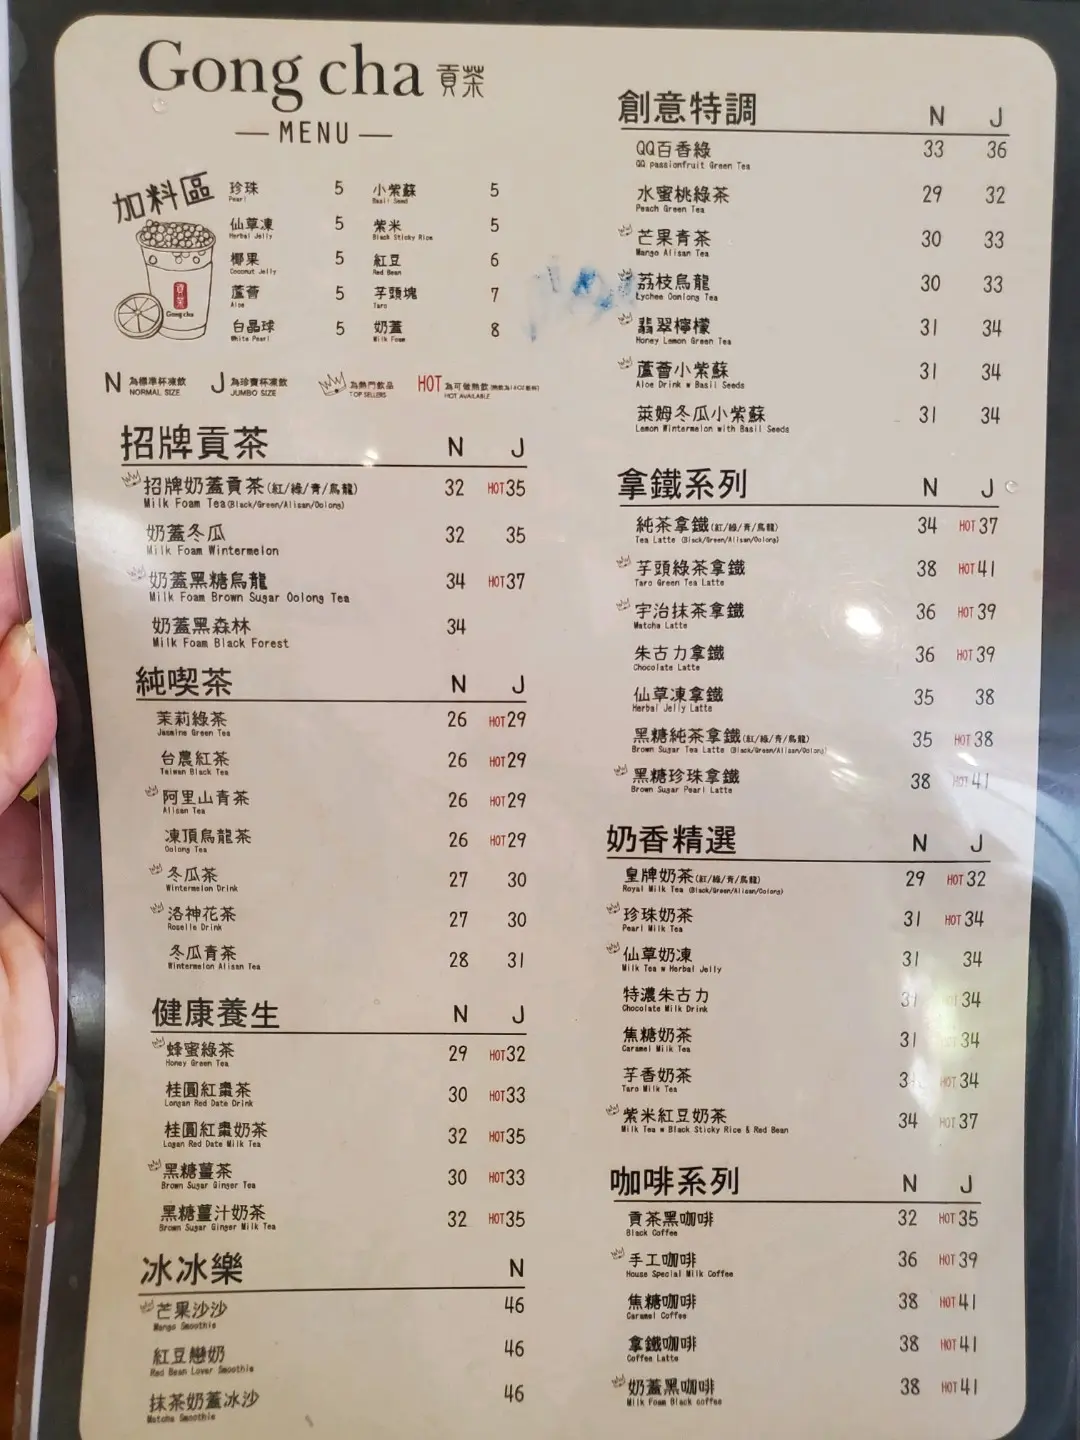 Gong cha 貢茶
MENU
加料區
珍珠 5 小紫蘇 5
Pearl Basil Seed
仙草凍 5 紫米 5
Herbal Jelly Black Sticky Rice
椰果 5 紅豆 6
Coconut Jelly Red Bean
蘆薈 5 芋頭塊 7
Aloe Taro
白晶球 5 奶蓋 8
White Pearl Milk Foam
貢茶
Gong cha
N 為標準杯凍飲 J 為珍寶杯凍飲 為熱門飲品 HOT 為可做熱飲
NORMAL SIZE JUMBO SIZE TOP SELLERS HOT AVAILABLE
招牌貢茶 N J
招牌奶蓋貢茶(紅/綠/青/烏龍) 32 HOT35
Milk Foam Tea(Black/Green/Alisan/Oolong)
奶蓋冬瓜 32 35
Milk Foam Wintermelon
奶蓋黑糖烏龍 34 HOT37
Milk Foam Brown Sugar Oolong Tea
奶蓋黑森林 34
Milk Foam Black Forest
純喫茶 N J
茉莉綠茶 26 HOT29
Jasmine Green Tea
台農紅茶 26 HOT29
Taiwan Black Tea
阿里山青茶 26 HOT29
Alisan Tea
凍頂烏龍茶 26 HOT29
Oolong Tea
冬瓜茶 27 30
Wintermelon Drink
洛神花茶 27 30
Roselle Drink
冬瓜青茶 28 31
Wintermelon Alisan Tea
健康養生 N J
蜂蜜綠茶 29 HOT32
Honey Green Tea
桂圓紅棗茶 30 HOT33
Longan Red Date Drink
桂圓紅棗奶茶 32 HOT35
Logan Red Date Milk Tea
黑糖薑茶 30 HOT33
Brown Sugar Ginger Tea
黑糖薑汁奶茶 32 HOT35
Brown Sugar Ginger Milk Tea
冰冰樂 N
芒果沙沙 46
Mango Smoothie
紅豆戀奶 46
Red Bean Lover Smoothie
抹茶奶蓋冰沙 46
Matcha Smoothie
創意特調 N J
QQ百香綠 33 36
QQ passionfruit Green Tea
水蜜桃綠茶 29 32
Peach Green Tea
芒果青茶 30 33
Mango Alisan Tea
荔枝烏龍 30 33
Lychee Oomlong Tea
翡翠檸檬 31 34
Honey Lemon Green Tea
蘆薈小紫蘇 31 34
Aloe Drink w Basil Seeds
萊姆冬瓜小紫蘇 31 34
Lemon Wintermelon with Basil Seeds
拿鐵系列 N J
純茶拿鐵(紅/綠/青/烏龍) 34 HOT37
Tea Latte (Black/Green/Alisan/Oolong)
芋頭綠茶拿鐵 38 HOT41
Taro Green Tea Latte
宇治抹茶拿鐵 36 HOT39
Matcha Latte
朱古力拿鐵 36 HOT39
Chocolate Latte
仙草凍拿鐵 35 38
Herbal Jelly Latte
黑糖純茶拿鐵(紅/綠/青/烏龍) 35 HOT38
Brown Sugar Tea Latte (Black/Green/Alisan/Oolong)
黑糖珍珠拿鐵 38 HOT41
Brown Sugar Pearl Latte
奶香精選 N J
皇牌奶茶(紅/綠/青/烏龍) 29 HOT32
Royal Milk Tea (Black/Green/Alisan/Oolong)
珍珠奶茶 31 HOT34
Pearl Milk Tea
仙草奶凍 31 34
Milk Tea w Herbal Jelly
特濃朱古力 31 34
Chocolate Milk Drink
焦糖奶茶 31 34
Caramel Milk Tea
芋香奶茶 HOT34
Taro Milk Tea
紫米紅豆奶茶 34 HOT37
Milk Tea w Black Sticky Rice & Red Bean
咖啡系列 N J
貢茶黑咖啡 32 HOT35
Black Coffee
手工咖啡 36 HOT39
House Special Milk Coffee
焦糖咖啡 38 HOT41
Caramel Coffee
拿鐵咖啡 38 HOT41
Coffee Latte
奶蓋黑咖啡 38 HOT41
Milk Foam Black coffee